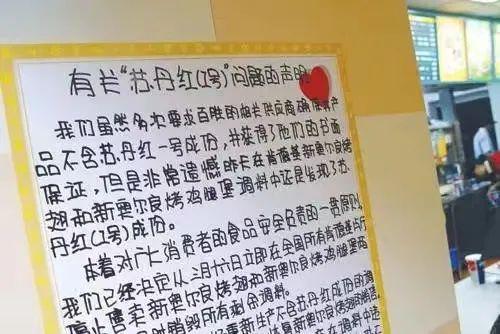 有关“苏丹红(1号)”问题的声明
我们虽然多次要求百胜的相关供应商确保其产
品不含苏丹红一号成份,并获得了他们的书面
保证,但是非常遗憾昨天在肯德基新奥尔良烤
翅和新奥尔良烤鸡腿堡调料中还是发现了苏
丹红(1号)成份。
本着对广大消费者的食品安全负责的一贯原则,
我们已经决定从三月十六日立即在全国所有肯德基餐厅
停止售卖新奥尔良烤翅和新奥尔良烤鸡腿堡两
销毁所有剩余调料。
重新生产不含苏丹红成份的调